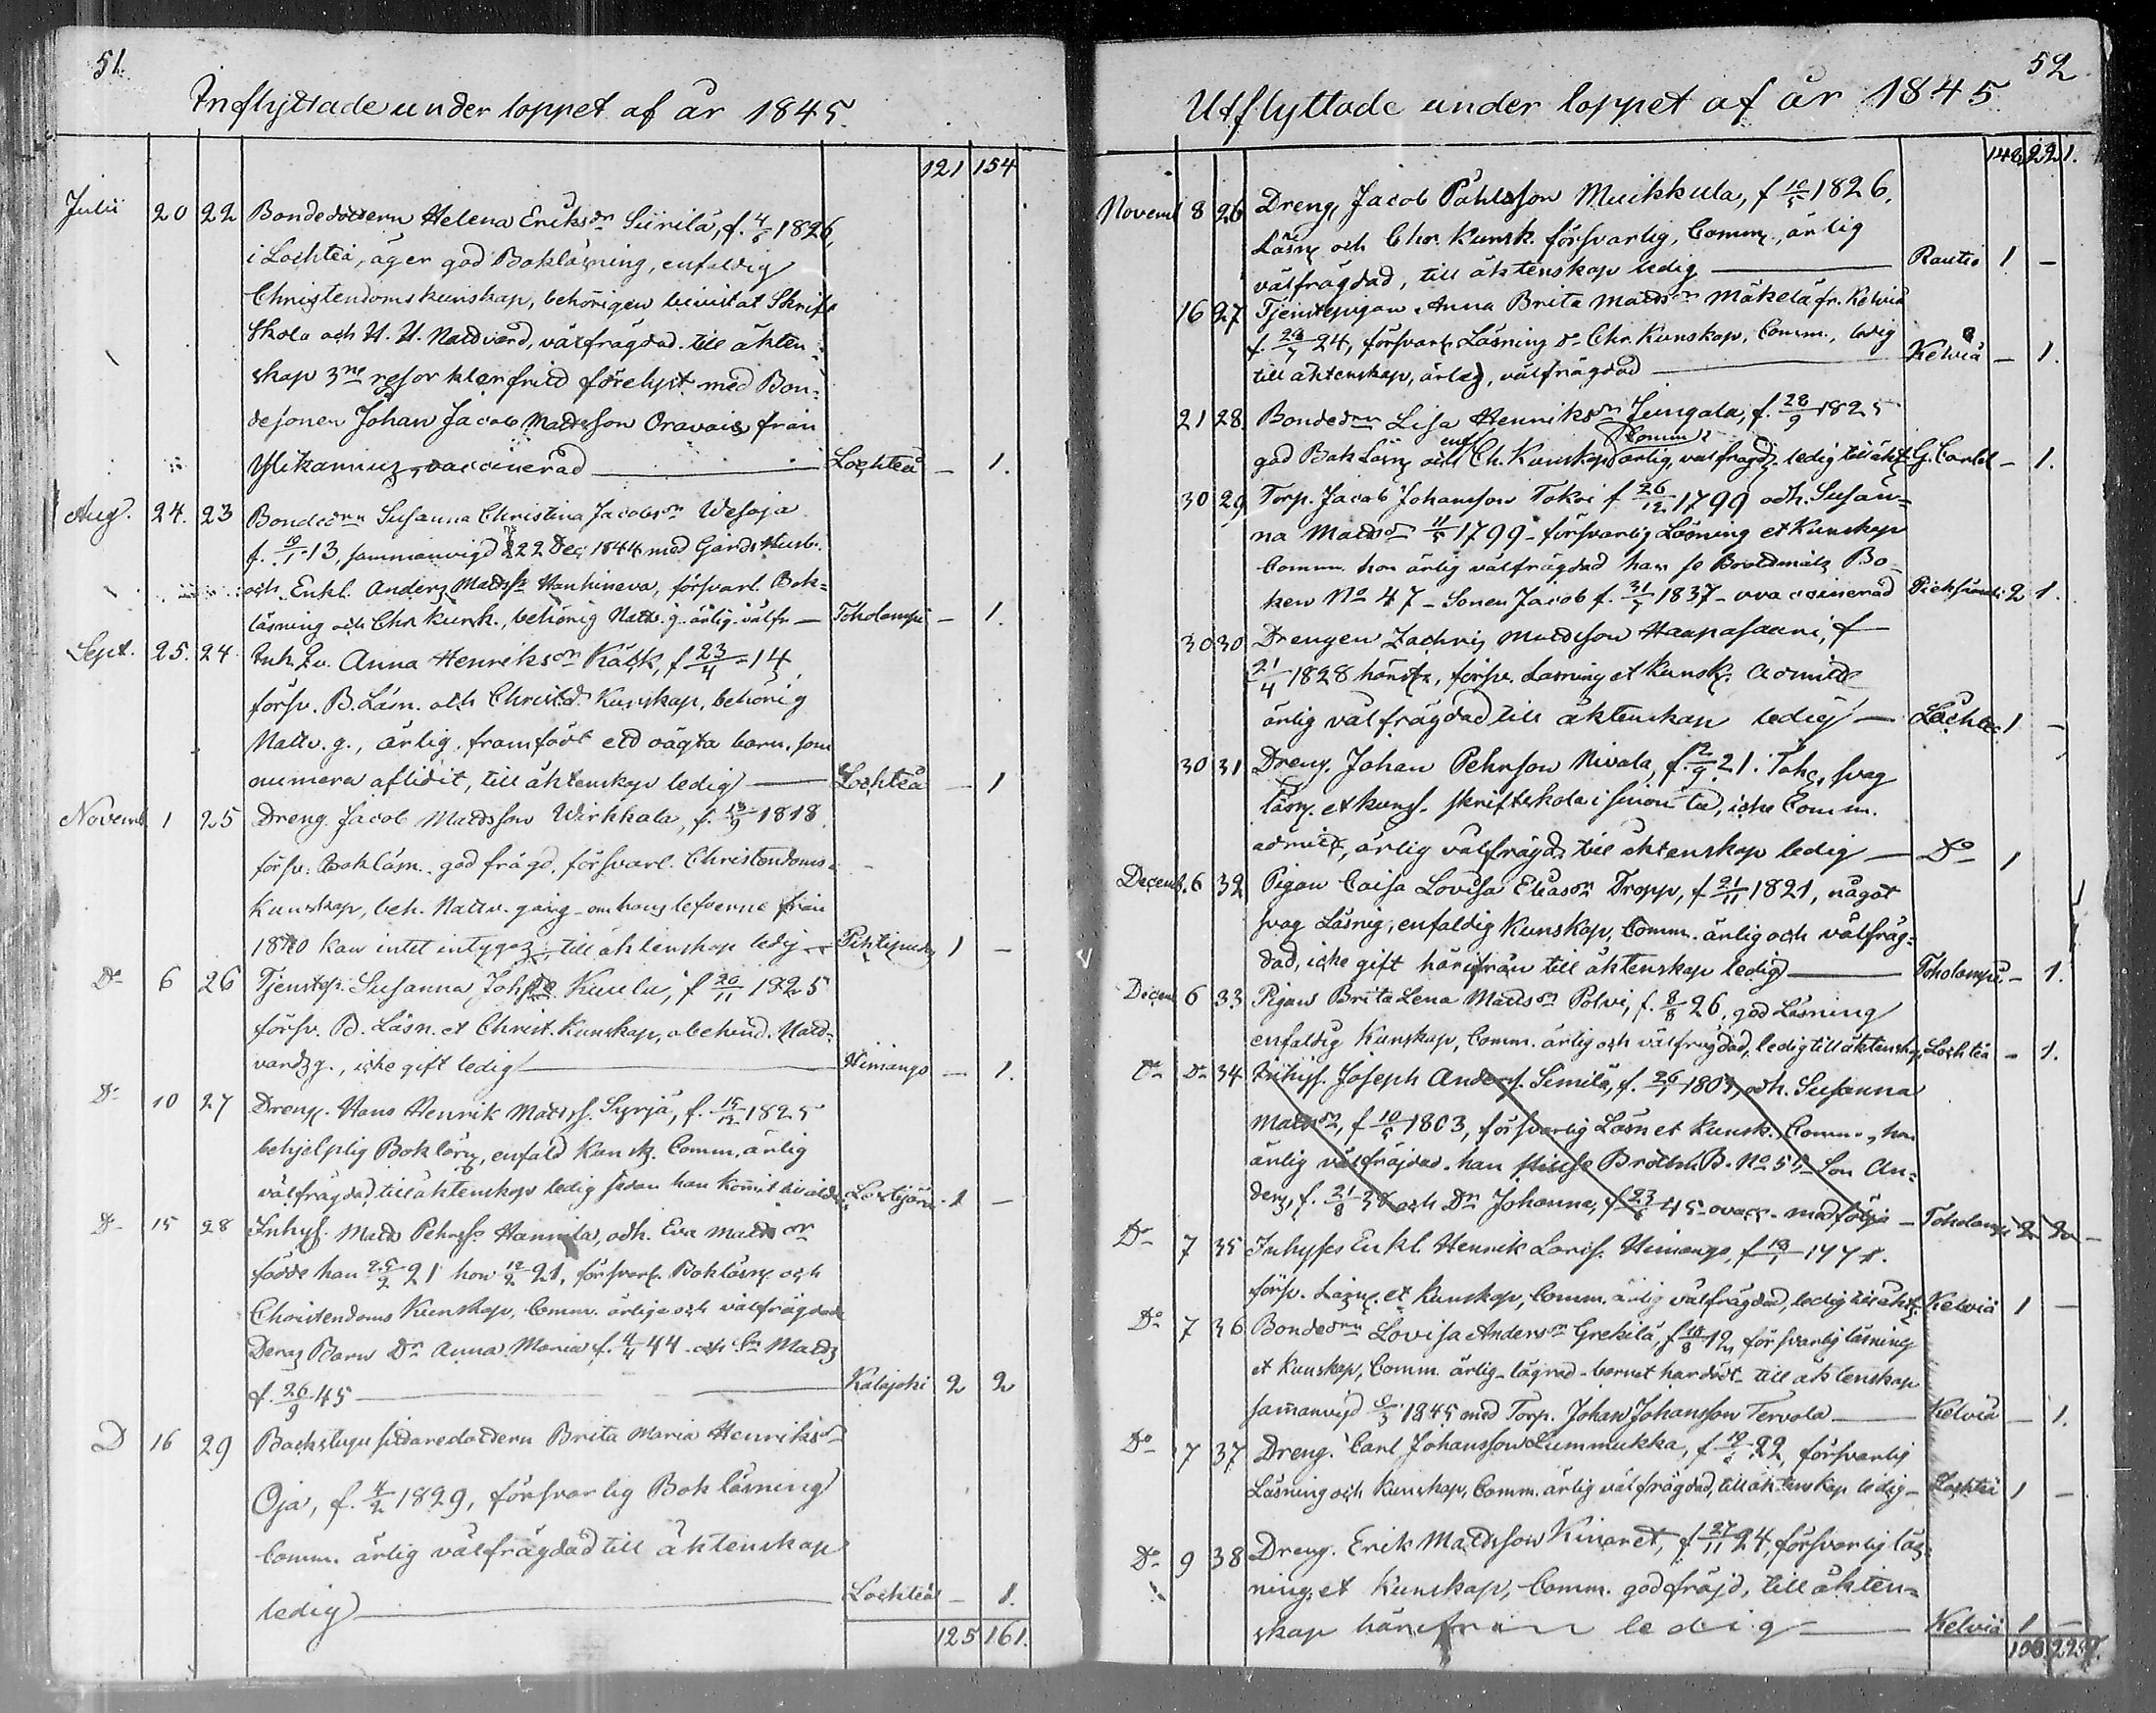 51.
Inflyttade under loppet af år 1845.
121 154
Julii 20 22 Bondedottern Helena Eriksdr Siirilä, f. 4/5 1826,
i Lochteå, äger god Bokläsning, enfaldig
Christendomskunskap, behörigen bevistat Skrift
skola och H. H. Nattvard, välfrägdad. till äkten-
skap 3ne resor klanfritt förelyst med Bon-
desonen Johan Jacob Mattsson Oravais från
Ylikannus, vaccinerad — Lochteå — 1.
Aug. 24. 23 Bondedrn Susanna Christina Jacobsdr Wesoja
f. 19/1 13, sammanvigd d 22 Dec 1844 med Gårds Husb.
och Enkl. Anders Mattss Hanhineva, försvarl. Bok-
läsning och Chr kunsk., behörig Nattv. g. ärlig välfr — Toholampi — 1.
Sept. 25. 24 Inh. Qv. Anna Henriksdr Käck, f 23/4 14,
försv. B. Läsn. och Christd Kunskap, behörig
Nattv. g., ärlig. framfödt ett oägta barn, som
numera aflidit, till äktenskap ledig — Lochteå — 1
Novemb 1 25 Dreng. Jacob Mattsson Wirkkala, f. 13/9 1818.
försv. Bokläsn. god frägd, försvarl. Christendoms-
kunskap, beh. Nattv. gång - om hans lefverne från
1840 kan intet intygas; till äktenskap ledig — Pihtipudas 1 —
Do 6 26 Tjenstep. Susanna Johsdr Kuula, f 20/11 1825
försv. B. Läsn. et Christ. Kunskap, obehind. Natt-
vards g., icke gift ledig — Himango — 1.
Do 10 27 Dreng. Hans Henrik Matss. Syrjä, f. 15/12 1825
behjelplig Bokläsn, enfald Kunsk. Comm. ärlig
välfrägdad, till äktenskap ledig sedan han kommit till ålder Lestijärvi 1 —
D 15 28 Inhys. Matts Pehrss Hannila, och H. Eva Mattsdr
födde han 25/2 21 hon 12/2 21, försvarl. Bokläsn och
Christendoms Kunskap, Comm. ärliga och välfrägdade
Deras Barn Dr Anna Maria f. 4/4 44 och Sn Matts
f. 26/9 45 — Kalajoki 2 2
D 16 29 Backstugusittaredottern Brita Maria Henriksdr
Oja, f. 4/2 1829, försvarlig Bokläsning
Comm. ärlig välfrägdad till äktenskap
ledig — Lochteå — 1.
125 161.
52
Utflyttade under loppet af år 1845.
148 221.
Novemb 8 26 Dreng Jacob Påhlsson Muikkula, f 10/5 1826.
Läsn och Chr. Kunsk. försvarlig, Comm., ärlig
välfrägdad, till äktenskap ledig — Rautio 1 —
16 27 Tjenstepigan Anna Brita Mattsdr Mäkelä fr. Kelviå
f. 24, försvarl Läsning o Chr. Kunskap, Comm., ledig
till äktenskap, ärlig, välfrägdad — Kelviå — 1.
21 28. Bondedrn Lisa Henriksdr Jungala, f. 28/9 1825
god Bok Läsn och enf Ch. Kunskap Comm ärlig, välfrägd, ledig till äkt G. Carleb — 1.
30 29 Torp. Jacob Johansson Tokoi f 26/12 1799 och H. Susan-
na Mattsdr 11/5 1799 - försvarlig Läsning et Kunskap
Comm. hon ärlig välfrägdad han se Brottmåls Bo-
ken No 47 - Sonen Jacob f. 31/7 1837 - vaccinerad 2 1.
30 30 Drengen Zachris Mattsson Haapasaari, f
21/4 1828 försv. Läsning et Kunsk. admitt
ärlig välfrägdad till äktenskap ledig — Lochteå 1 —
30 31 Dreng. Johan Pehrson Nivala, f. 2/9 21. svag
läsn. et kunsk. skriftskola icke Comm.
admitt, ärlig välfrägd till äktenskap ledig — Do 1
Decemb. 6 32 Pigan Caisa Lovisa Eliasdr Dropp, f 21/11 1821, något
svag Läsnig, enfaldig Kunskap, Comm. ärlig och välfräg-
dad, icke gift härifrån till äktenskap ledig — Toholampi — 1.
Decem 6 33 Pigan Brita Lena Mattsdr Polvi, f. 8/8 26, god Läsning
enfaldig Kunskap, Comm. ärlig och välfrägdad, ledig till äktenskap Lochteå — 1.
Do Do 34 Inhys. Joseph Anders. Similä, f. och H. Susanna
Mattsdr, f 10/5 1803, försvarlig Läsn et Kunsk. Comm., hon
ärlig välfräjdad. han Brottm. B. No Son An-
ders, f. 21/8 och Dr Johanna, f 45 ovacc. medfölja — Toholampi 2 2
Do 7 35 Inhyses Enkl. Henrik Henango,
försv. Läsn. et kunskap, Comm. ärlig välfrägdad, ledig till äkt. Kelviå 1 —
Do 7 36 Bondedrn Lovisa Andersdr Grekilä, försvarlig läsning
et Kunskap, Comm. ärlig - lägrad - barnet har dödt - till äktenskap
sammanvigd 1845 med Torp. Johan Johansson Tervola — Kelviå — 1.
Do 7 37 Dreng. Carl Johansson Lummukka, f 22, försvarlig
Läsning och Kunskap, Comm. ärlig välfrägdad, till äktenskap ledig — Lochteå 1 —
Do 9 38 Dreng. Erik Mattsson Kinaret, f 27/11 24, försvarlig läs-
ning, et Kunskap, Comm. god fräjd, till äkten-
skap härifrån ledig — Kelviå 1 —